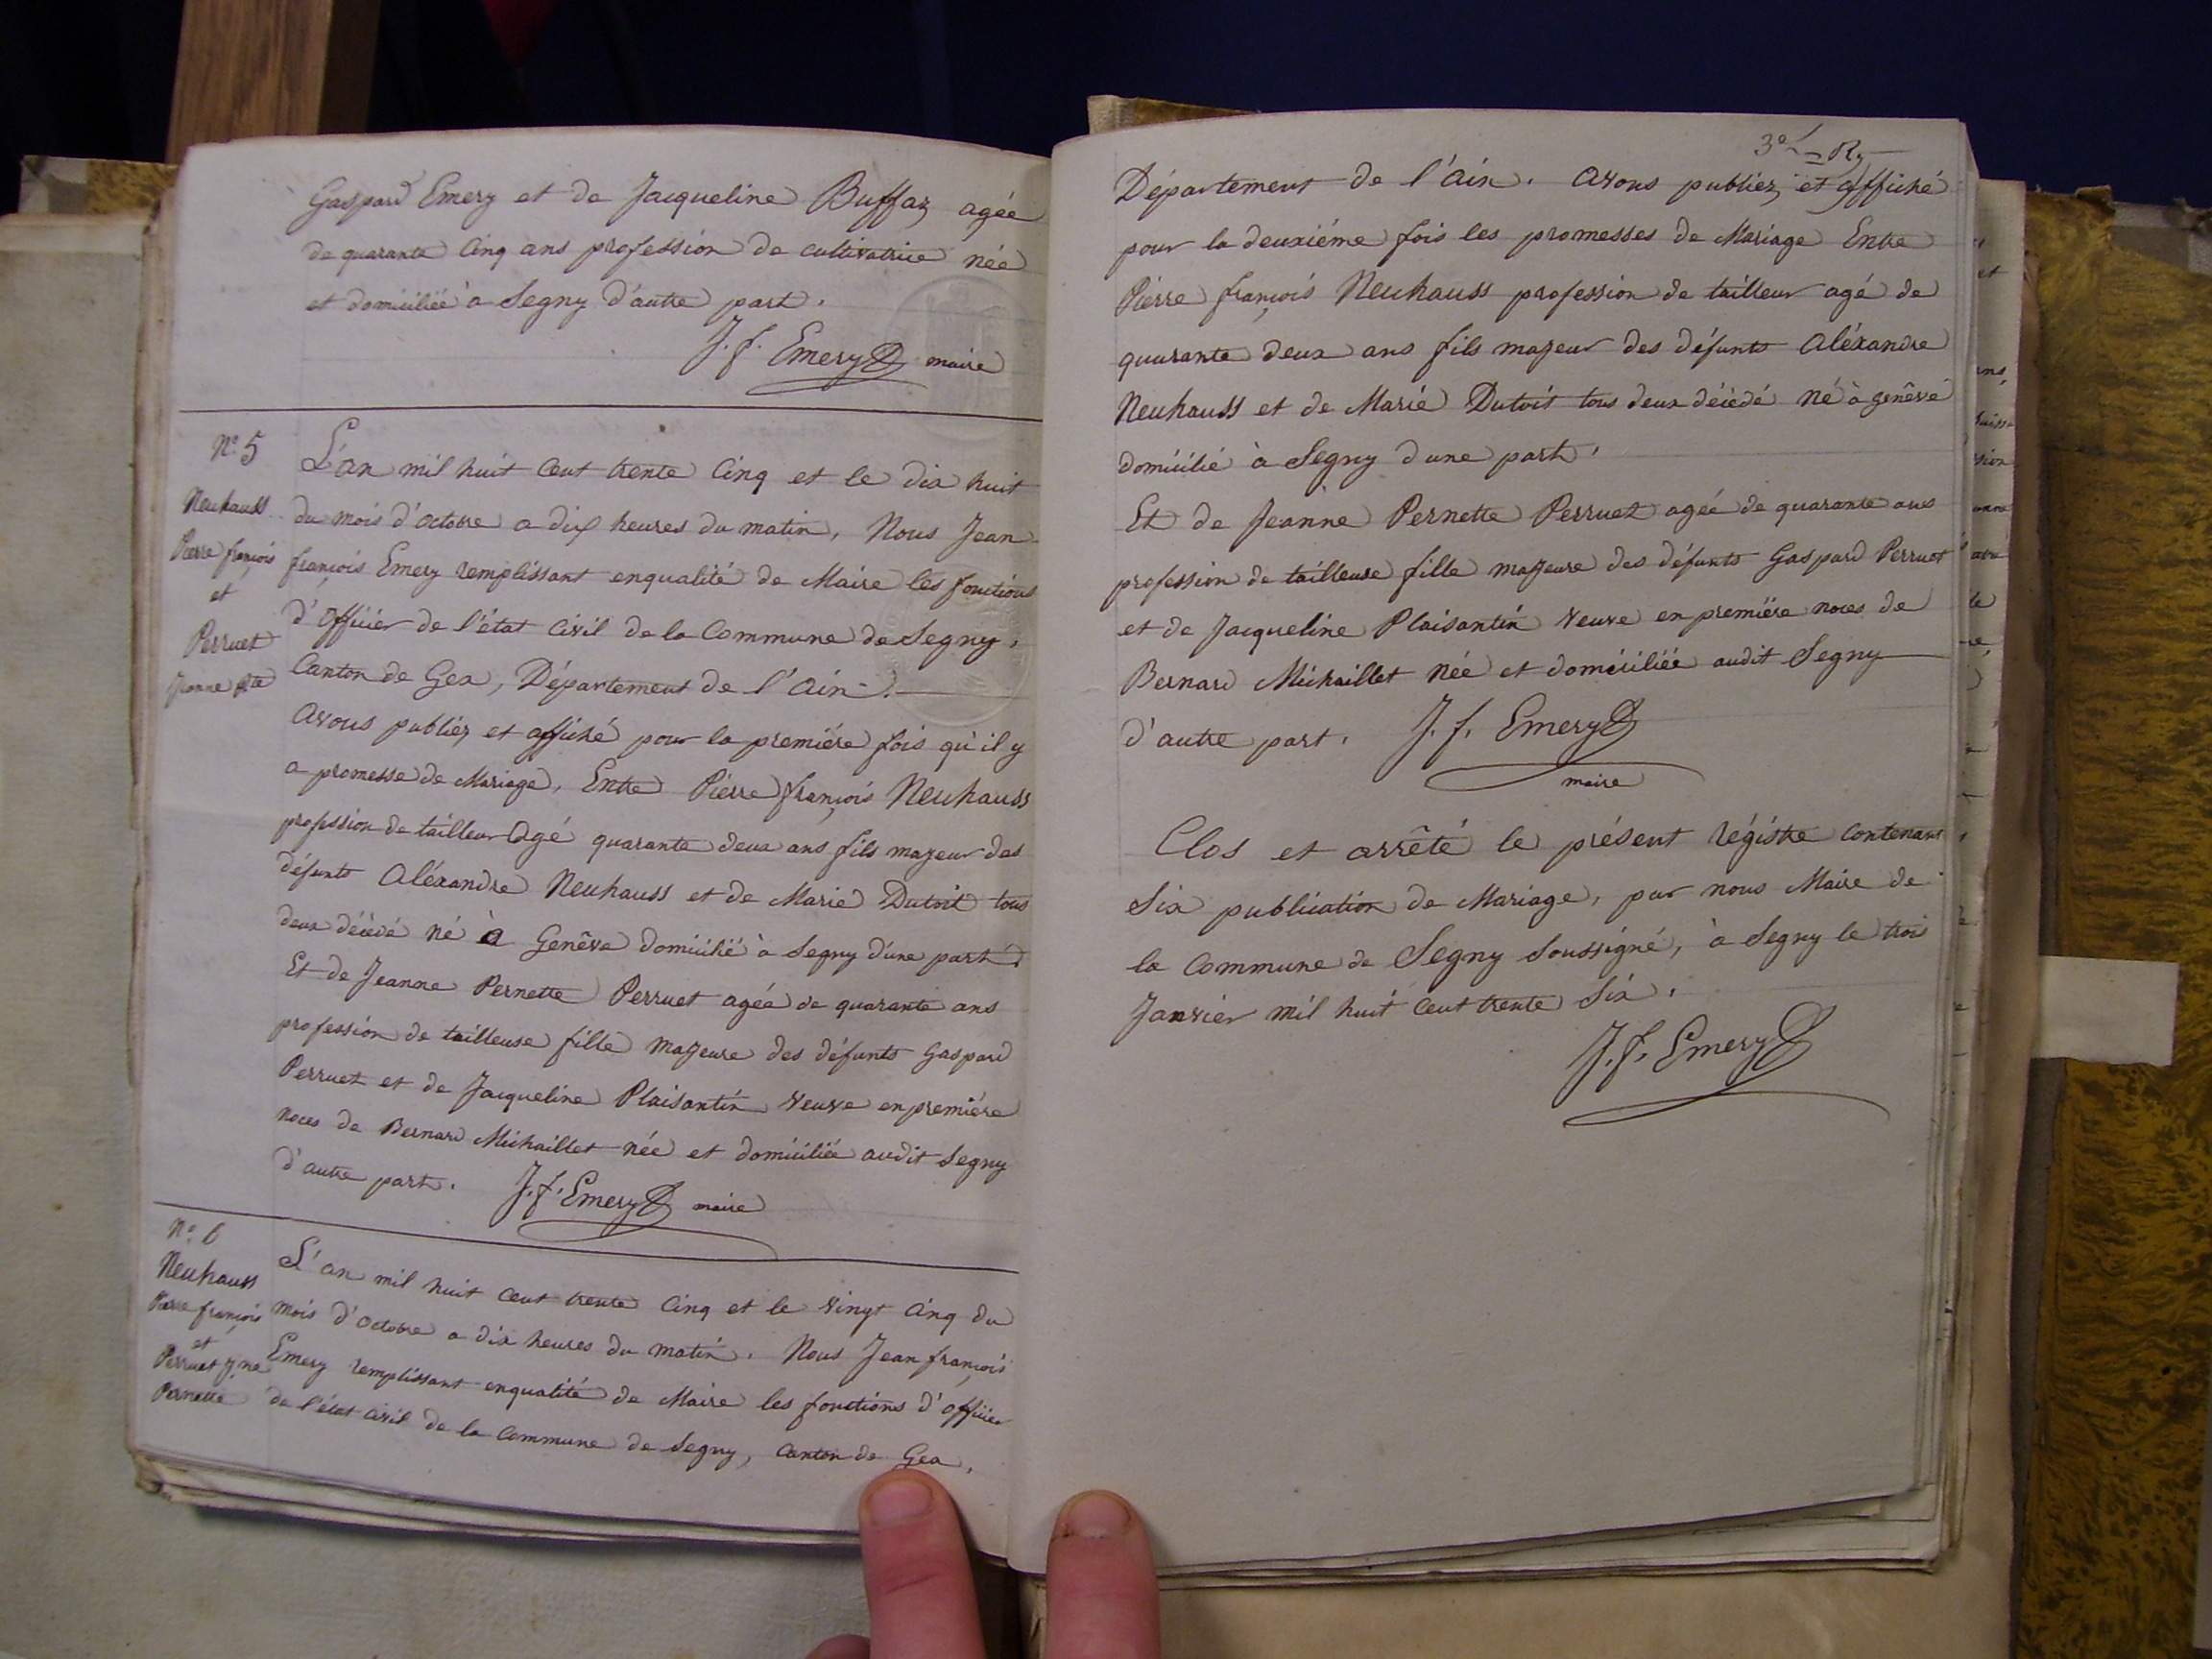 Gaspard Emery et de Jacqueline Buffaz agée
de quarante Cinq ans profession de cultivatrice née
et domiciliée à Segny d'autre part.
J. f. Emery maire
N° 5
Neuhauss
Pierre françois
et
Perruet
Jeanne pte
L'an mil huit Cent trente Cinq et le dix huit
du mois d'octobre a dix heures du matin, Nous Jean
françois Emery remplissant enqualité de Maire les fonctions
d'officier de l'état Civil de la Commune de Segny,
Canton de Gex, Département de l'ain.
avons publiéz et affiché pour la première fois qu'il y
a promesse de Mariage, Entre Pierre françois Neuhauss
profession de tailleur agé quarante deux ans fils majeur des
défunts aléxandre Neuhauss et de Marie Dutoit tous
deux décédé né à Genêve domicilié à Segny d'une part
Et de Jeanne Pernette Perruet agée de quarante ans
profession de tailleuse fille majeure des défunts Gaspard
Perruet et de Jacqueline Plaisantin veuve en première
noces de Bernard Michaillet née et domiciliée audit Segny
d'autre part. J. f. Emery maire
N° 6
Neuhauss
Pierre françois
et
Perruet Jne
Pernette
L'an mil huit Cent trente Cinq et le vingt Cinq du
mois d'octobre a dix heures du matin. Nous Jean françois
Emery remplissant enqualité de Maire les fonctions d'officier
de l'état Civil de la Commune de Segny, Canton de Gex,
3e
Département de l'ain. avons publiéz et affiché
pour la deuxiéme fois les promesses de Mariage Entre
Pierre françois Neuhauss profession de tailleur agé de
quarante deux ans fils majeur des défunts aléxandre
Neuhauss et de Marie Dutoit tous deux décédé né à genêve
domicilié à Segny d'une part.
Et de Jeanne Pernette Perruet agée de quarante ans
profession de tailleuse fille majeure des défunts Gaspard Perruet
et de Jacqueline Plaisantin veuve en première noces de
Bernard Michaillet née et domiciliée audit Segny
d'autre part. J. f. Emery
maire
Clos et arrêté le présent régistre contenant
six publication de Mariage, par nous Maire de
la Commune de Segny Soussigné, à Segny le trois
Janvier mil huit Cent trente Six.
J. f. Emery